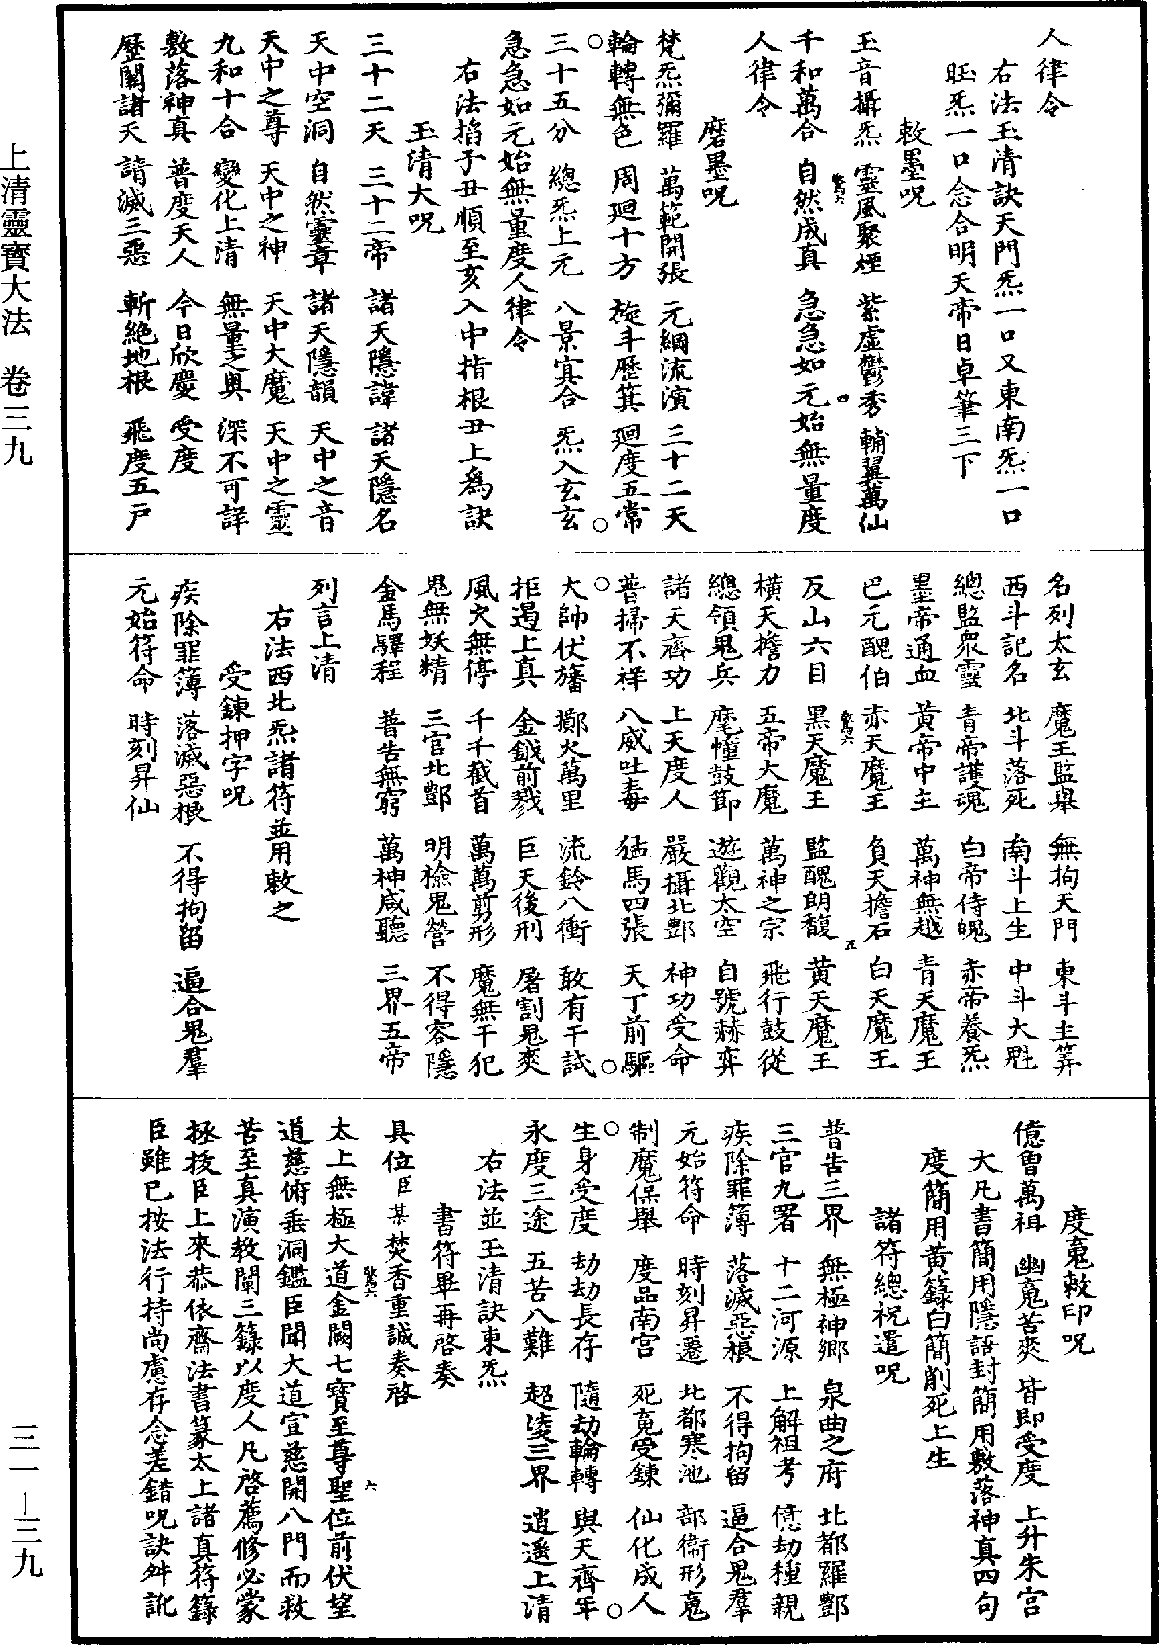 人律令
右法玉清訣天門炁一口又東南炁一口
旺炁一口念合明天帝日卓筆三下
敕墨呪
玉音攝炁 靈風聚煙 紫虛鬱秀 輔翼萬仙
千和萬合 自然成真 急急如元始無量度
人律令
磨墨呪
梵炁彌羅 萬範開張 元綱流演 三十二天
輪轉無色 周廻十方 旋斗歷箕 廻度五常
三十五分 總炁上元 八景冥合 炁入玄玄
急急如元始無量度人律令
右法掐子丑順至亥入中指根丑上為訣
玉清大呪
三十二天 三十二帝 諸天隱諱 諸天隱名
天中空洞 自然靈章 諸天隱韻 天中之音
天中之尊 天中之神 天中大魔 天中之靈
九和十合 變化上清 無量之奧 深不可詳
敷落神真 普度天人 今日欣慶 受度
歷關諸天 請滅三惡 斬絕地根 飛度五戶
名列太玄 魔王監舉 無拘天門 東斗主筭
西斗記名 北斗落死 南斗上生 中斗大魁
總監眾靈 青帝護魂 白帝侍魄 赤帝養炁
墨帝通血 黃帝中主 萬神無越 青天魔王
巴元醜伯 赤天魔王 負天擔石 白天魔王
反山六目 黑天魔王 監醜朗馥 黃天魔王
橫天擔力 五帝大魔 萬神之宗 飛行鼓從
總領鬼兵 麾幢鼓節 遊觀太空 自號赫弈
諸天齊功 上天度人 嚴攝北酆 神功受命
普掃不祥 八威吐毒 猛馬四張 天丁前驅
大帥伏旛 擲火萬里 流鈴八衝 敢有干試
拒遏上真 金鉞前戮 巨天後刑 屠割鬼爽
風火無停 千千截首 萬萬剪形 魔無干犯
鬼無妖精 三官北酆 明檢鬼營 不得容隱
金馬驛程 普告無窮 萬神咸聽 三界五帝
列言上清
右法西北炁諸符並用敕之
受鍊押字呪
疾除罪簿 落滅惡根 不得拘留 逼合鬼羣
元始符命 時刻昇仙
度䰟敕印呪
億曾萬祖 幽䰟苦爽 皆即受度 上升朱宮
大凡書簡用隱語封簡用敷落神真四句
度簡用黃籙白簡削死上生
諸符總祝遣呪
普告三界 無極神鄉 泉曲之府 北都羅酆
三官九署 十二河源 上解祖考 億劫種親
疾除罪簿 落滅惡根 不得拘留 逼合鬼羣
元始符命 時刻昇遷 北都寒池 部衛形䰟
制魔保舉 度品南宮 死䰟受鍊 仙化成人
生身受度 劫劫長存 隨劫輪轉 與天齊年
永度三途 五苦八難 超凌三界 逍遙上清
右法並玉清訣東炁
書符畢再啓奏
具位臣某焚香重誠奏啓
太上無極大道金闕七寶至尊聖位前伏望
道慈俯垂洞鑑臣聞大道宣慈開八門而救
苦至真演教闡三籙以度人凡啓薦修必蒙
拯拔臣上來恭依齋法書篆太上諸真符籙
臣雖已按法行持尚慮存念差錯呪訣舛訛
上清靈寶大法 卷三九
三一—三九